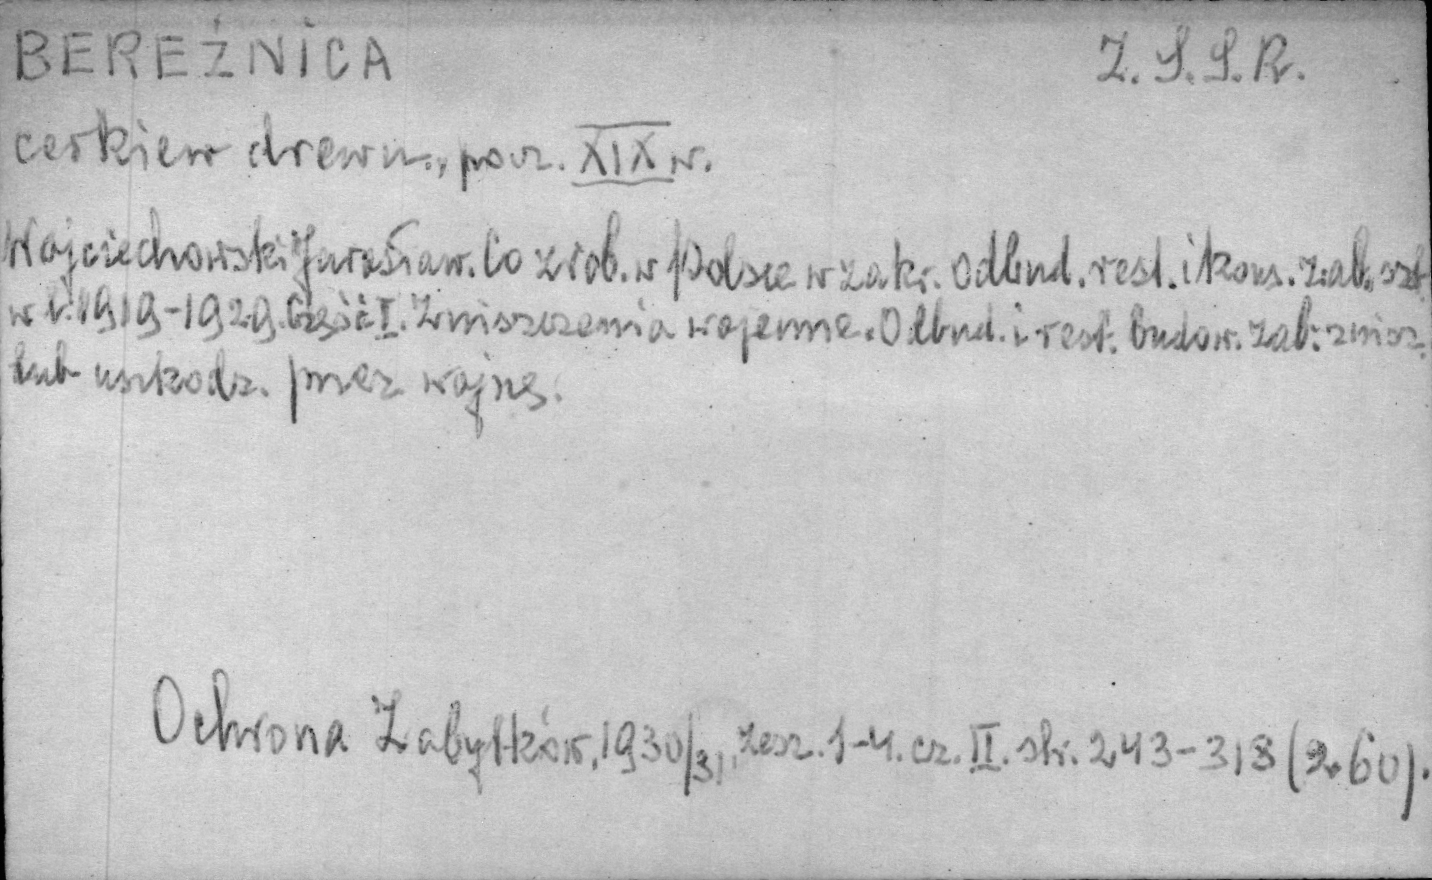 BEREŹNICA Z.S.S.R.
cerkiew drewn., pocz. XIX w.
Wojciechowski Jarosław. Co zrob. w Polsce w zakr. odbud. rest. i kons. zab. szt.
w l. 1919-1929. Część I. Zniszczenia wojenne. Odbud. i rest. budow. zab. zniszcz.
lub uszkodz. przez wojnę.
Ochrona Zabytków, 1930/31, zesz. 1-4. cz. II. str. 243-318 (260).